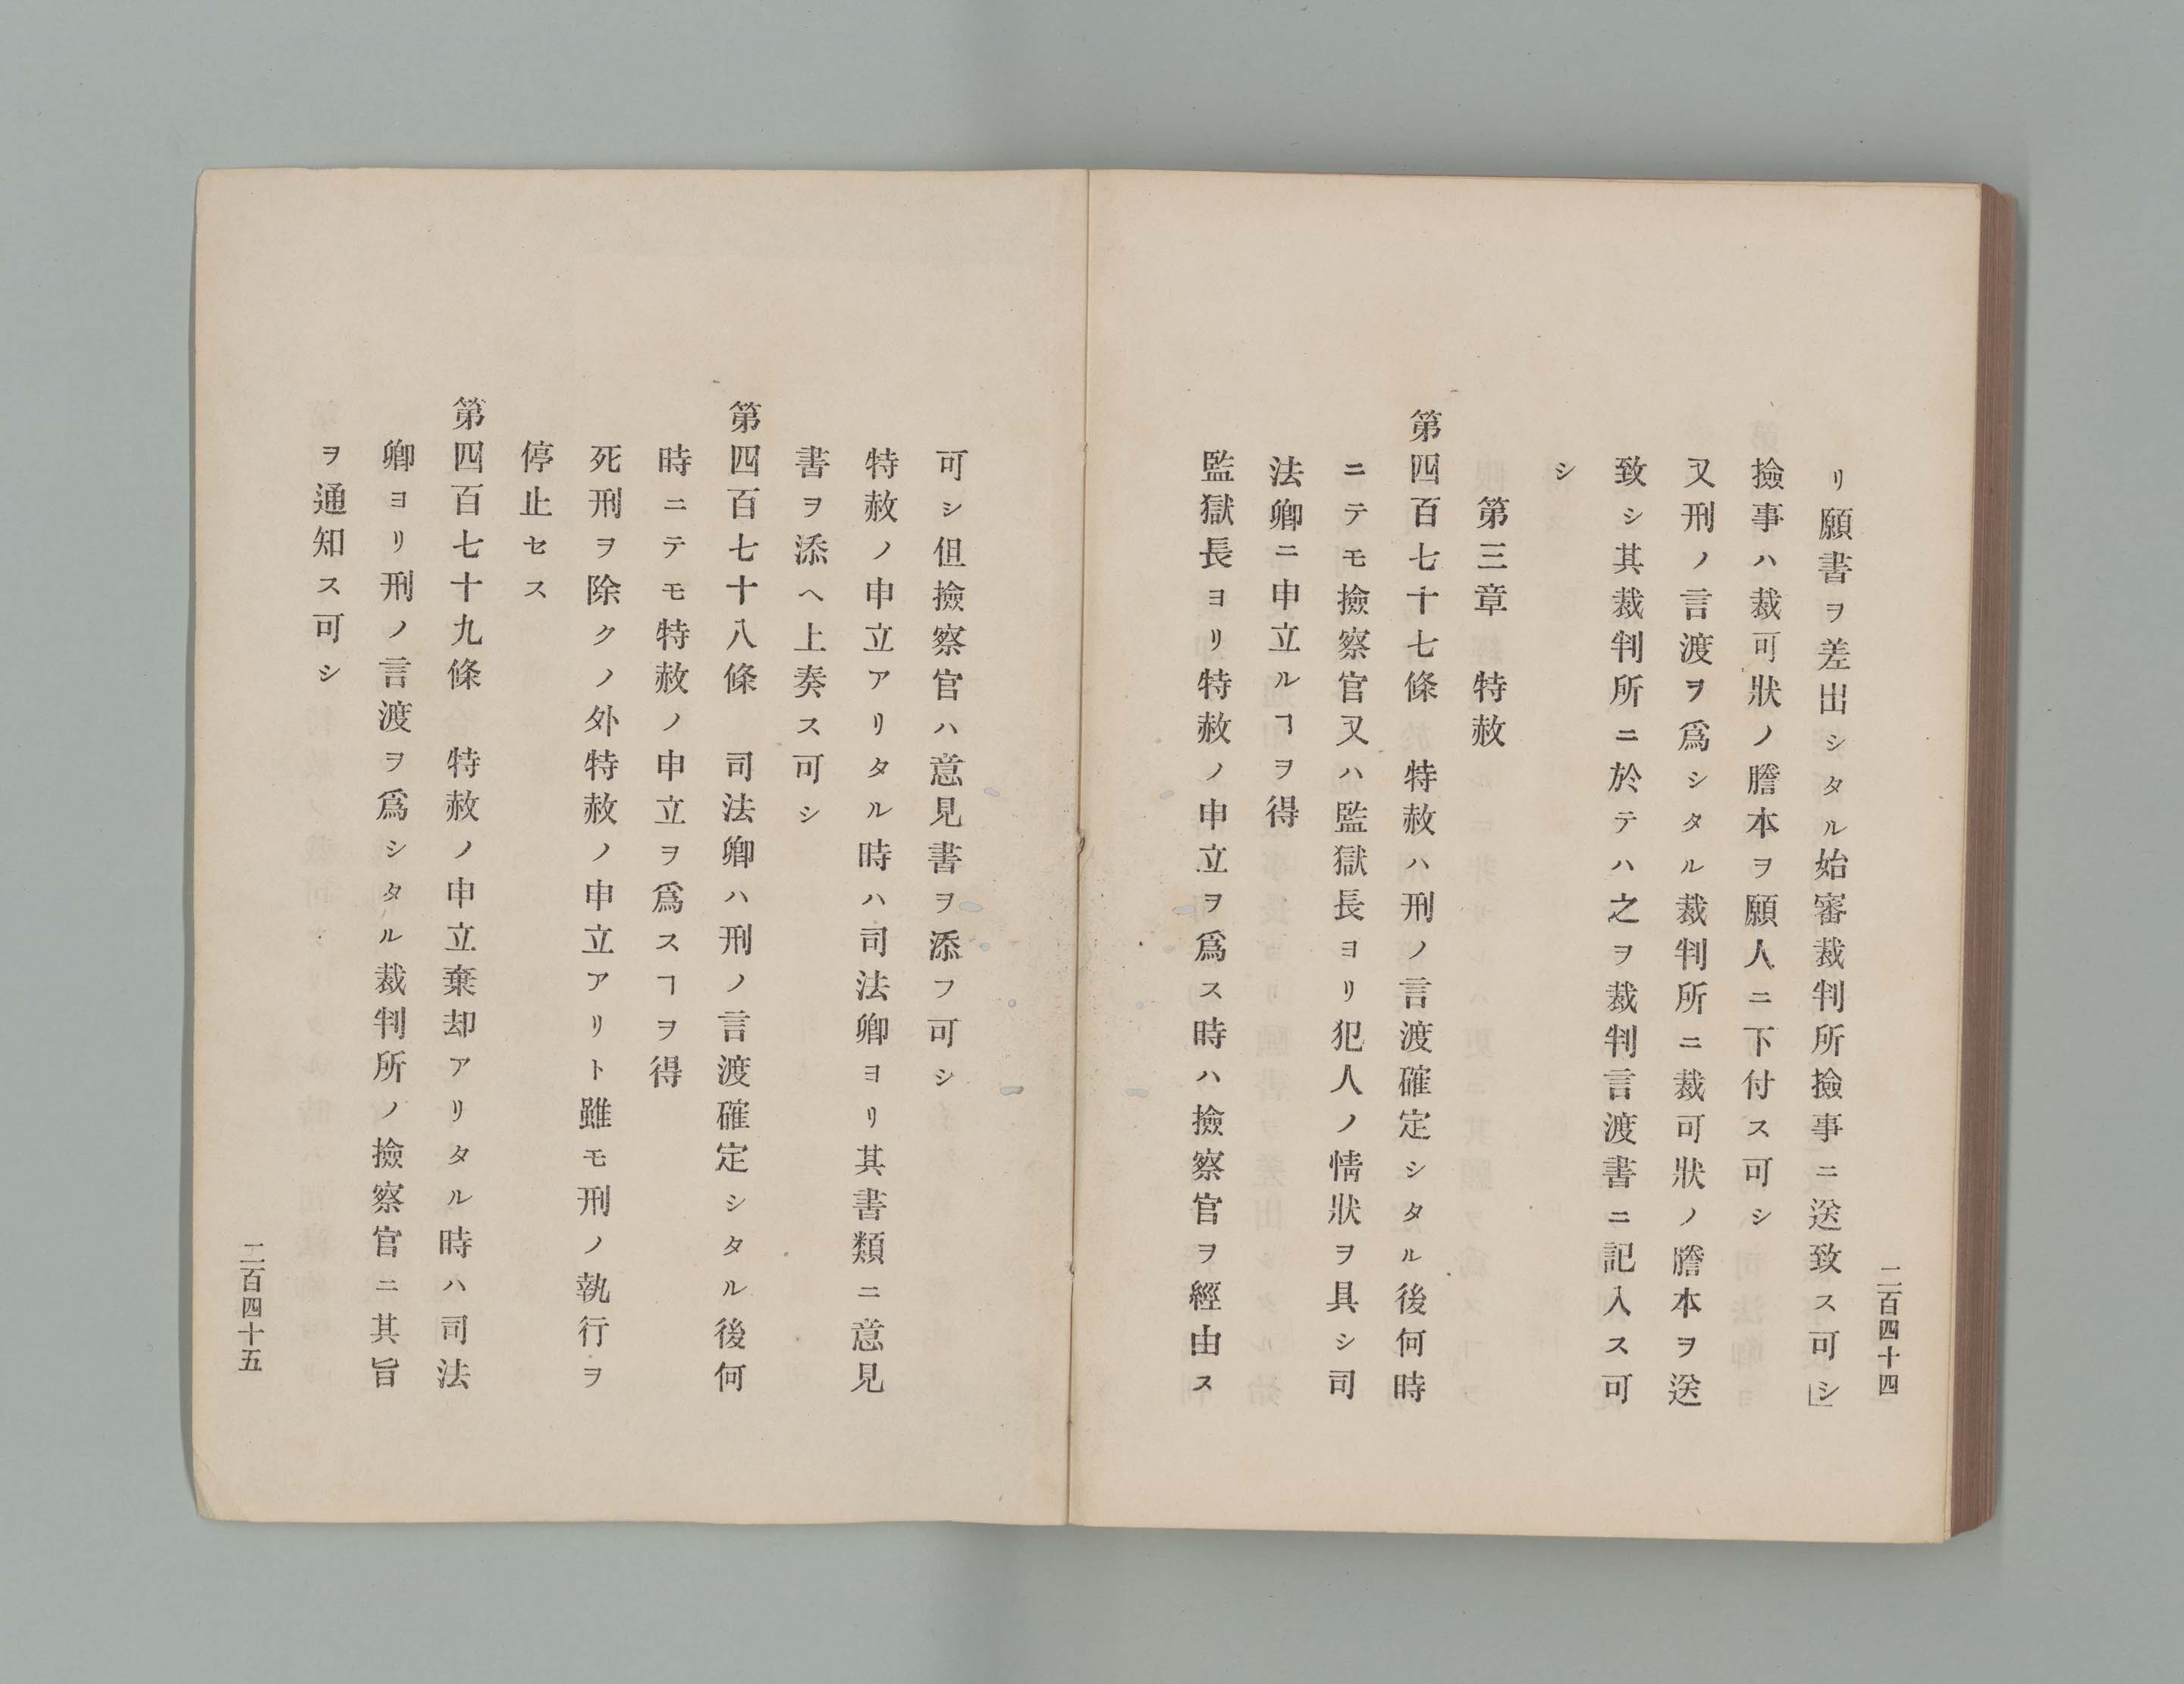 二百四十四
リ願書ヲ差出シタル始審裁判所撿事ニ送致ス可シ」
撿事ハ裁可狀ノ謄本ヲ願人ニ下付ス可シ
又刑ノ言渡ヲ爲シタル裁判所ニ裁可狀ノ謄本ヲ送
致シ其裁判所ニ於テハ之ヲ裁判言渡書ニ記入ス可
シ
第三章　特赦
第四百七十七條　特赦ハ刑ノ言渡確定シタル後何時
ニテモ撿察官又ハ監獄長ヨリ犯人ノ情狀ヲ具シ司
法卿ニ申立ルヿヲ得
監獄長ヨリ特赦ノ申立ヲ爲ス時ハ撿察官ヲ經由ス
可シ但撿察官ハ意見書ヲ添フ可シ
特赦ノ申立アリタル時ハ司法卿ヨリ其書類ニ意見
書ヲ添ヘ上奏ス可シ
第四百七十八條　司法卿ハ刑ノ言渡確定シタル後何
時ニテモ特赦ノ申立ヲ爲スヿヲ得
死刑ヲ除クノ外特赦ノ申立アリト雖モ刑ノ執行ヲ
停止セス
第四百七十九條　特赦ノ申立棄却アリタル時ハ司法
卿ヨリ刑ノ言渡ヲ爲シタル裁判所ノ撿察官ニ其旨
ヲ通知ス可シ
二百四十五